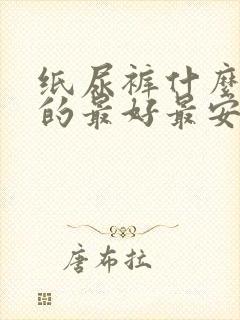 纸尿裤什麼
的最好最安
唐布拉